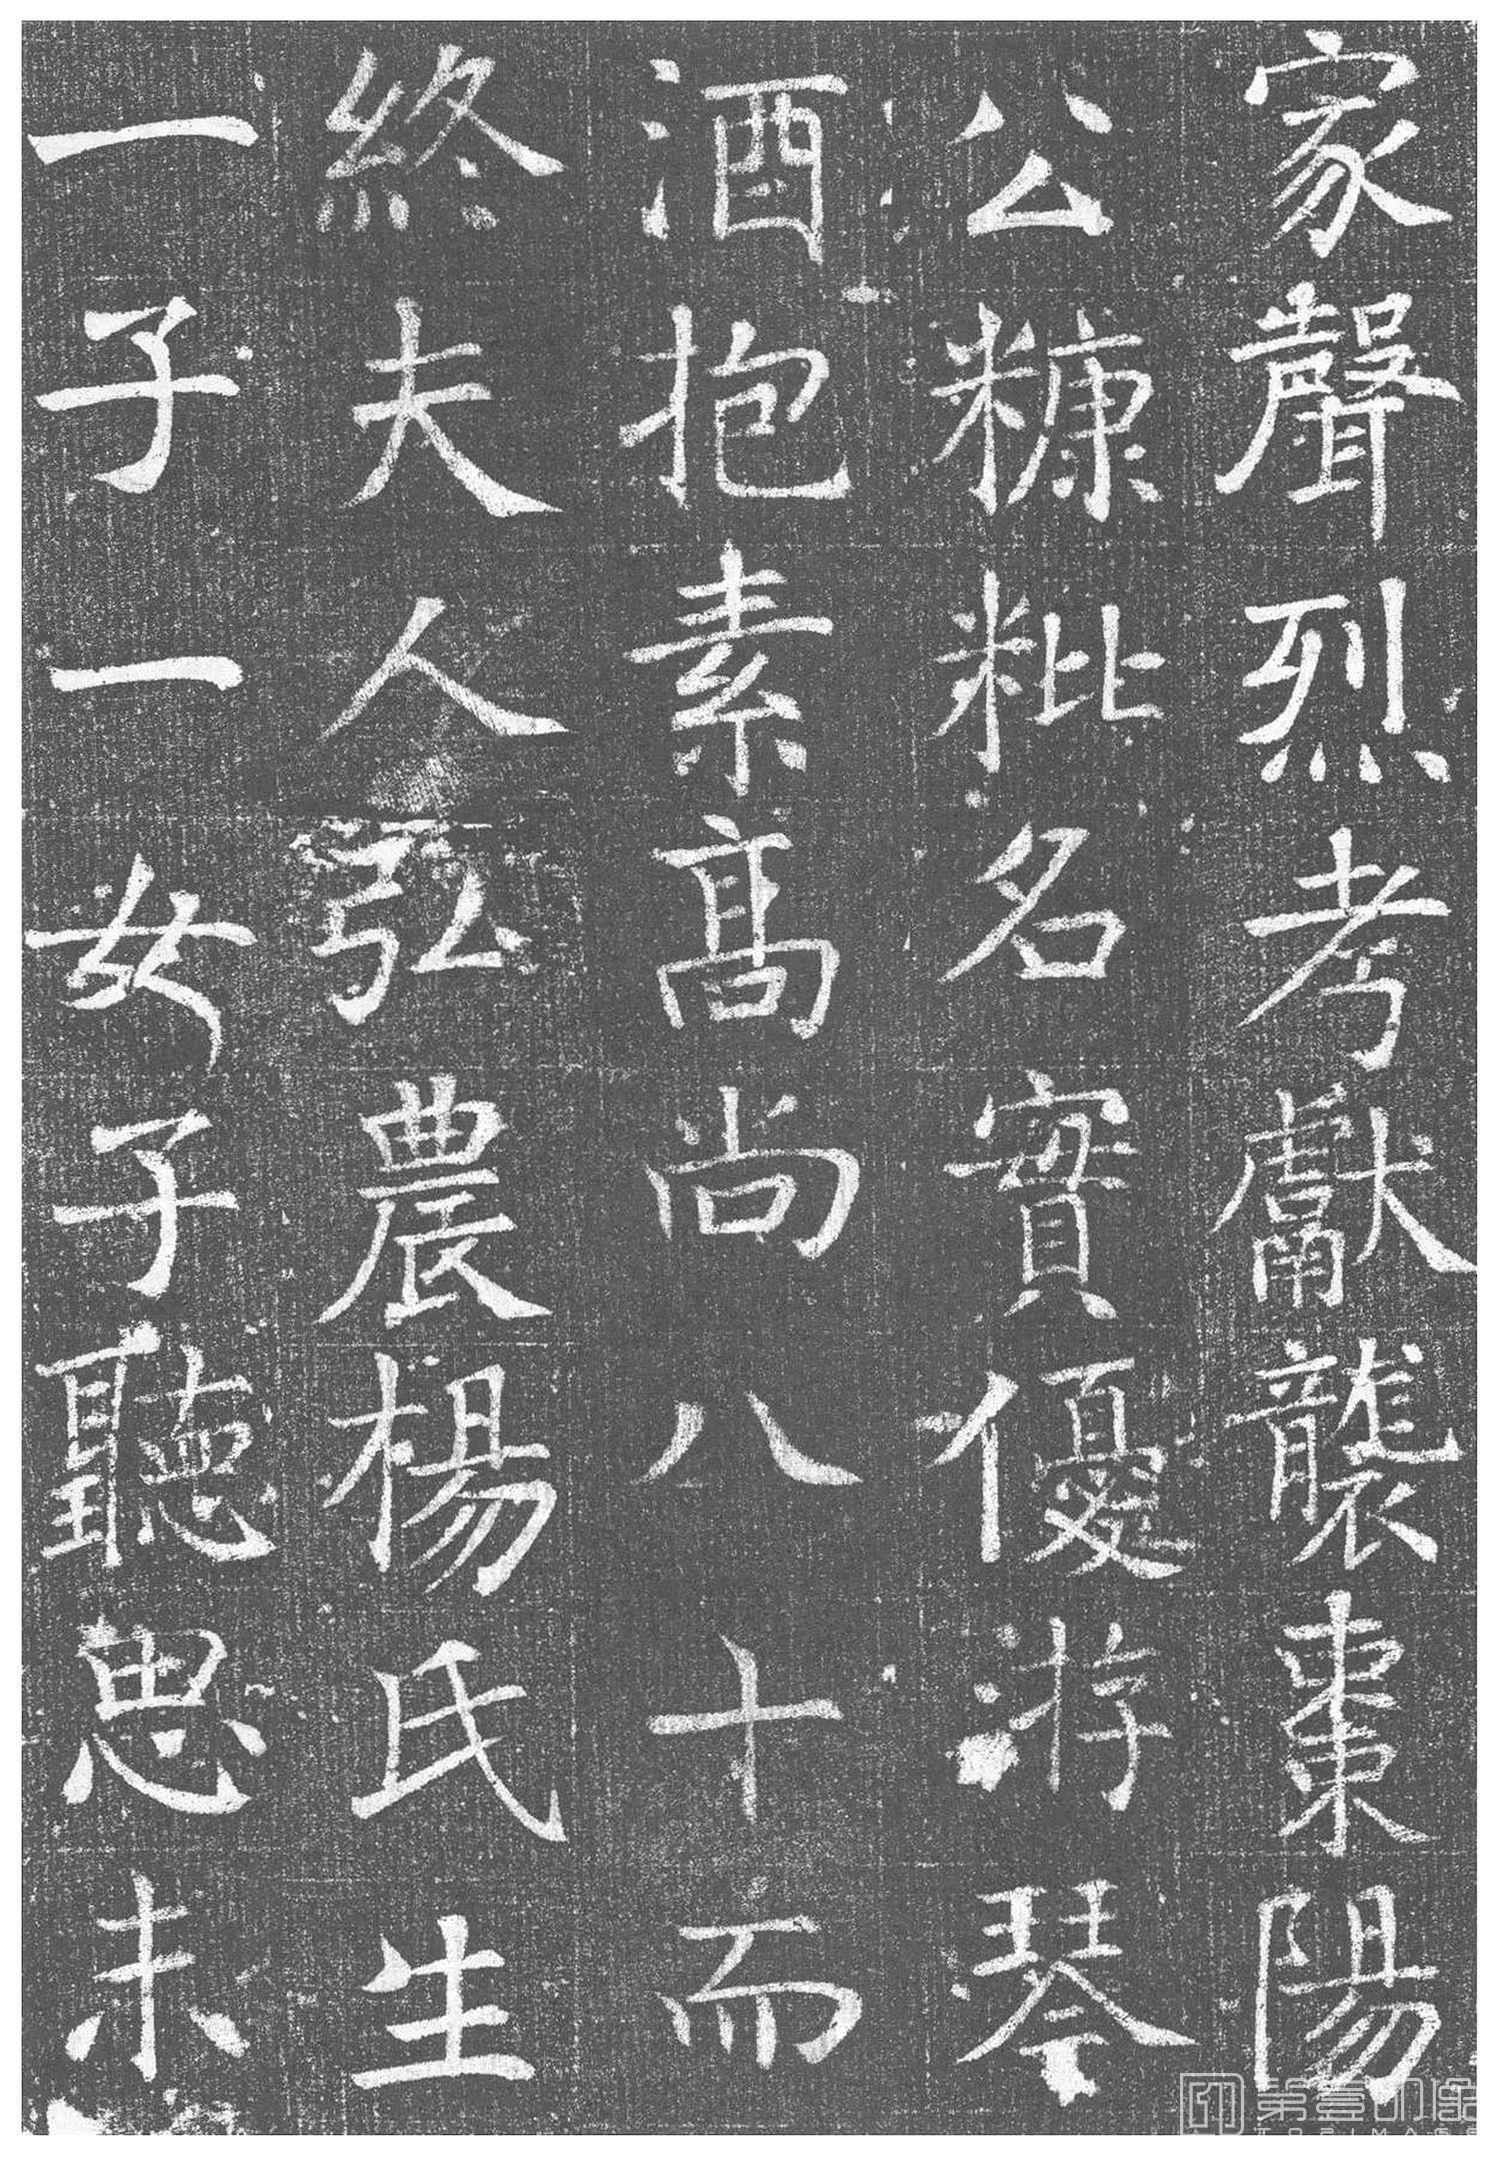 家聲烈考獻襲棗陽
公糠粃名實優游琴
酒抱素高尚八十而
終夫人弘農楊氏生
一子一女子聽思未
第壹印像
TOPIMAGE